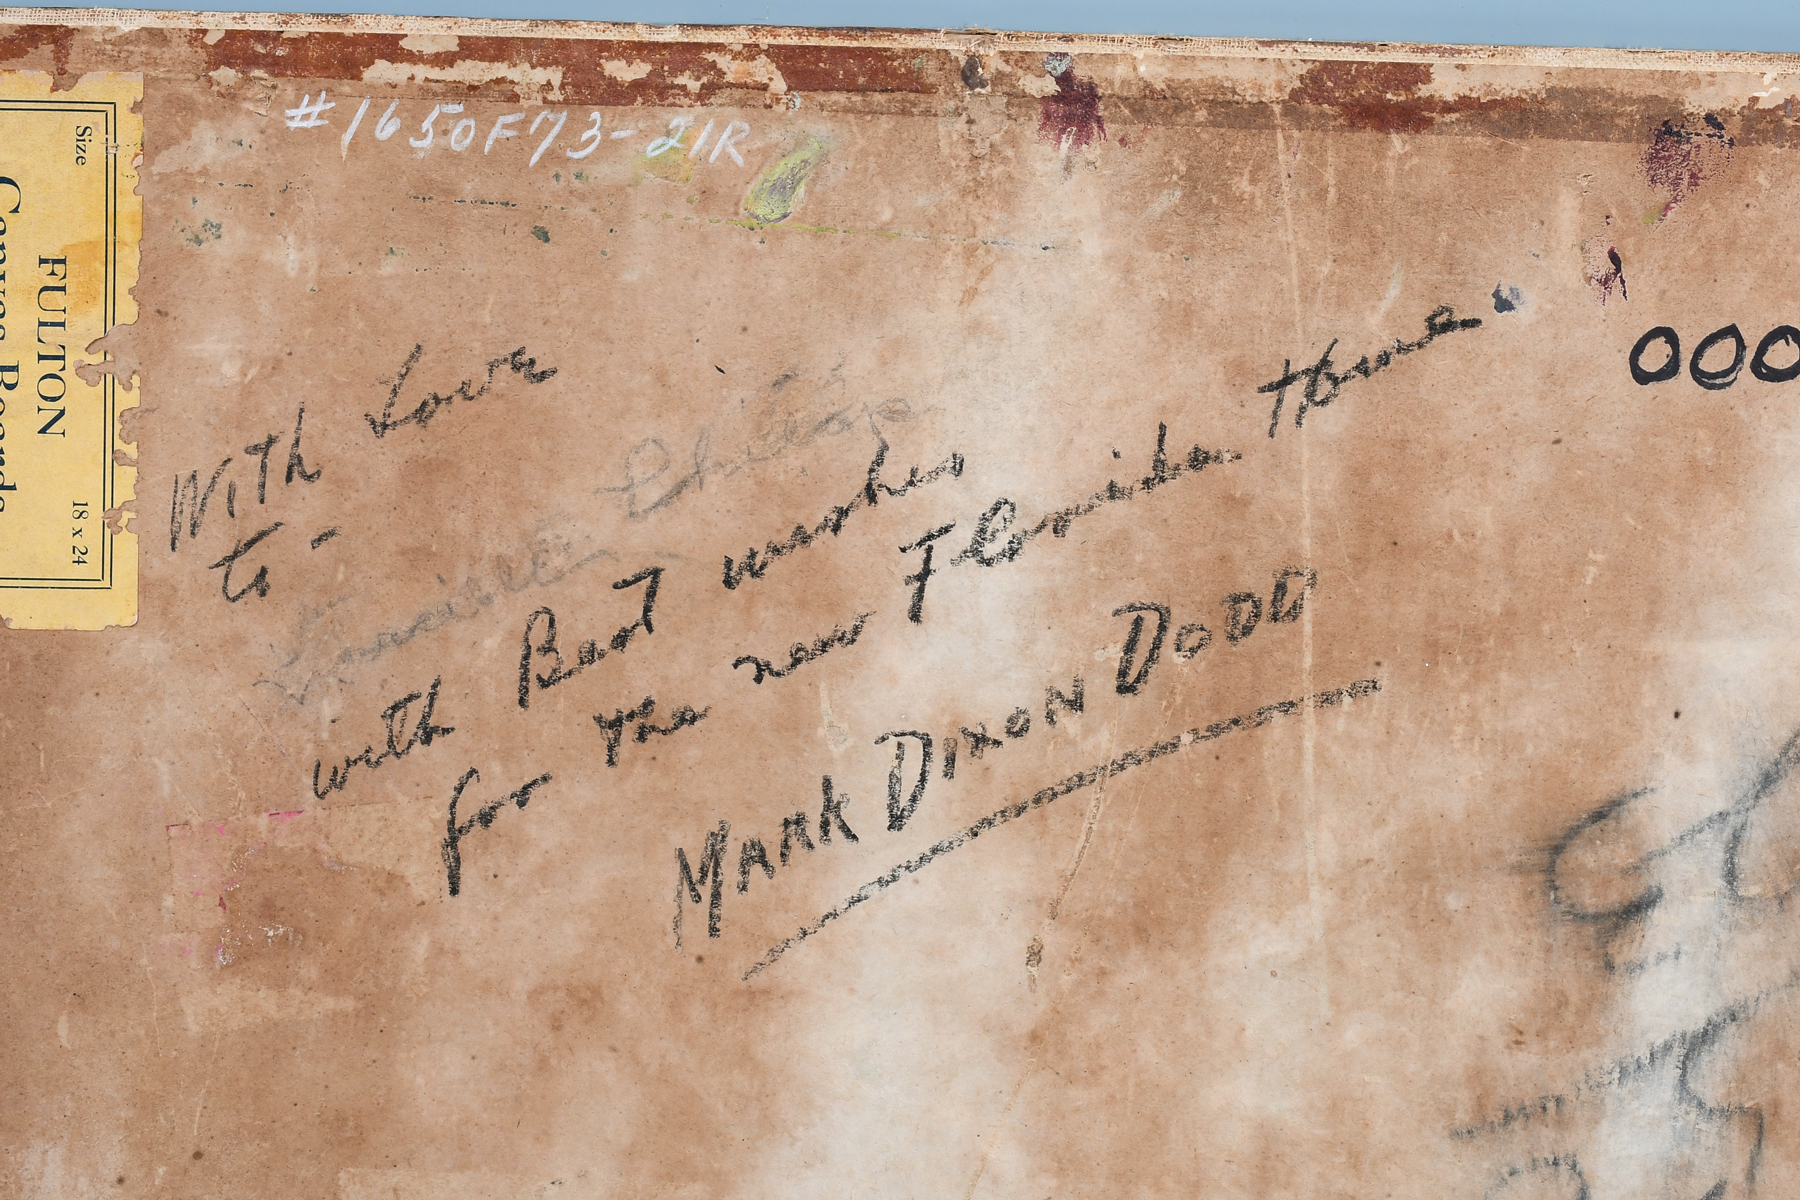 #1650F73-21R
Size
FULTON
Canvas Boards
18 x 24
000
With Love
to -
with Best wishes
for the new Florida Home"
MARK DIXON DODD